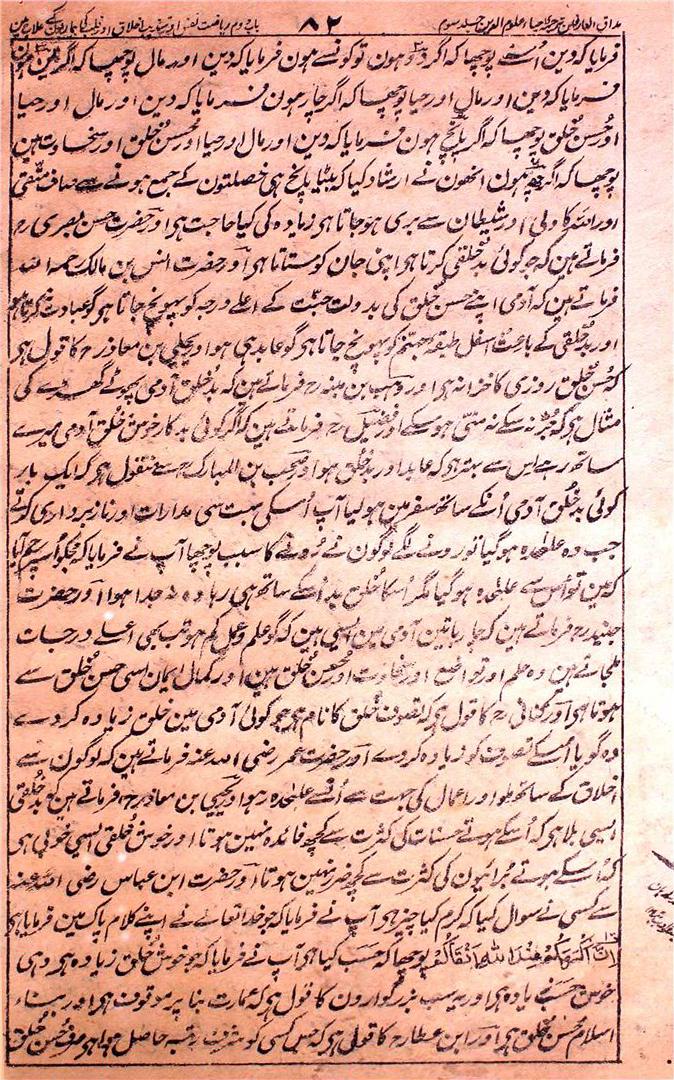 مذاق العارفین ترجمہ احیاء علوم الدین جلد سوم ۸۲ باب دوم ریاضت نفس اور تہذیب اخلاق اور قلب کی بیماریوں کے علاج میں
فرمایا کہ دین اُسنے پوچھا کہ اگر دو ہون تو کونسے ہون فرمایا کہ دین اور مال پوچھا کہ اگر تین ہون
فرمایا کہ دین اور مال اور حیا پوچھا کہ اگر چار ہون فرمایا کہ دین اور مال اور حیا
اور حُسن خُلق پوچھا کہ اگر پانچ ہون فرمایا کہ دین اور مال اور حیا اور حُسن خُلق اور سخاوت ہین
پوچھا کہ اگر چھ ہون انھون نے ارشاد کیا کہ بیٹا پانچ ہی خصلتون کے جمع ہونے سے صاف متقی
اور اللہ کا ولی اور شیطان سے بری ہو جاتا ہی زیادہ کی کیا حاجت ہی اور حضرت حسن بصری رح
فرماتے ہین کہ جو کوئی بدخلقی کرتا ہی اپنی جان کو ستاتا ہی اور حضرت انس بن مالک رحمہ اللہ
فرماتے ہین کہ آدمی اپنے حسن خُلق کی بدولت جنّت کے اعلے درجہ کو پہونچ جاتا ہی گو عبادت نکرتا ہو
اور بدخُلقی کے باعث اسفل طبقہ جہنم کو پہونچ جاتا ہی گو عابد ہی ہو اور یحیٰی بن معاذ رح کا قول ہی
کہ حُسن خُلق روزی کا خزانہ ہی اور وہب بن منبہ رح فرماتے ہین کہ بدخُلق آدمی پھوٹے گھڑے کی
مثال ہی کہ جُڑ نہ سکے نہ مٹی ہو سکے اور فضیل رح فرماتے ہین کہ اگر کوئی بدکار خوش خُلق آدمی میرے
ساتھ رہے اس سے بہتر ہی کہ عابد اور بدخُلق ہو اور بن المبارک رح سے منقول ہی کہ ایک بار
کوئی بدخُلق آدمی اُنکے ساتھ سفر مین ہو لیا آپ اُسکی بہت سی مدارات اور ناز برداری کرتے
جب وہ علٰحدہ ہو گیا تو رونے لگے لوگون نے رونے کا سبب پوچھا آپ نے فرمایا کہ مجکو اُسپر رحم آیا
کہ مین تو اُس سے علٰحدہ ہو گیا مگر اُسکا خُلق بد اُسکے ساتھ ہی رہا وہ نہ جدا ہوا اور حضرت
جنید رح فرماتے ہین کہ چار باتین آدمی مین ایسی ہین کہ گو علم و عمل کم ہو تب بھی اعلے درجات
ملجاتے ہین وہ حلم اور تواضع اور سخاوت اور حُسن خُلق ہین اور کمال ایمان اسی حسن خُلق سے
ہوتا ہی اور کتانی رح کا قول ہی کہ تصوف خُلق کا نام ہی جو کوئی آدمی مین خلق زیادہ کر دے
وہ گویا اُسکے تصوف کو زیادہ کر دے اور حضرت عمر رضی اللہ عنہ فرماتے ہین کہ لوگون سے
اخلاق کے ساتھ ملو اور اعمال کی جہت سے اُنسے علٰحدہ رہو اور یحیٰی بن معاذ رح فرماتے ہین کہ بدخُلقی
ایسی بلا ہی کہ اُسکے ہوتے حسنات کی کثرت سے کچھ فائدہ نہین ہوتا اور خوش خُلقی ایسی خوبی ہی
کہ اُسکے ہوتے بُرائیون کی کثرت سے کچھ ضرر نہین ہوتا اور حضرت ابن عباس رضی اللہ عنہ
سے کسی نے سوال کیا کہ کرم کیا چیز ہی آپ نے فرمایا کہ جو خداتعالے نے اپنے کلام پاک مین فرمایا ہی
اِنَّ اَكْرَمَكُمْ عِنْدَ اللهِ اَتْقَاكُمْ پوچھا کہ حَسَب کیا ہی آپ نے فرمایا کہ جو خوش خُلق زیادہ ہی وہی
خوش حَسَب زیادہ ہی اور یہ سب بزرگوارون کا قول ہی کہ عمارت بنا پر موقوف ہی اور بناء
اسلام حُسن خُلق ہی اور ابن عطار رح کا قول ہی کہ جس کسی کو شرف رتبہ حاصل ہوا ہی صرف حُسن خُلق